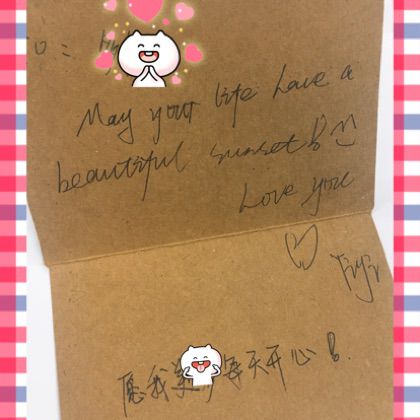 May your life have a
beautiful sunset!
Love you
愿我 每天开心!